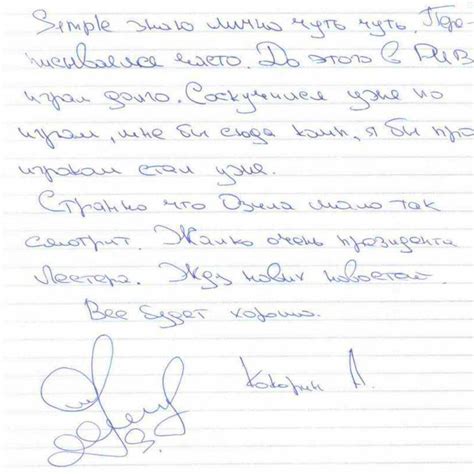 Simple знаю лично чуть чуть. Пере-
писывался часто. До этого в PUB
играл долго. Соскучился уже по
играм, мне бы сюда комп, я бы про
игроком стал уже.
Странно что Озила мало так
смотрит. Жалко очень президента
Лестера. Жду новых новостей.
Все будет хорошо.
Кокорин А.